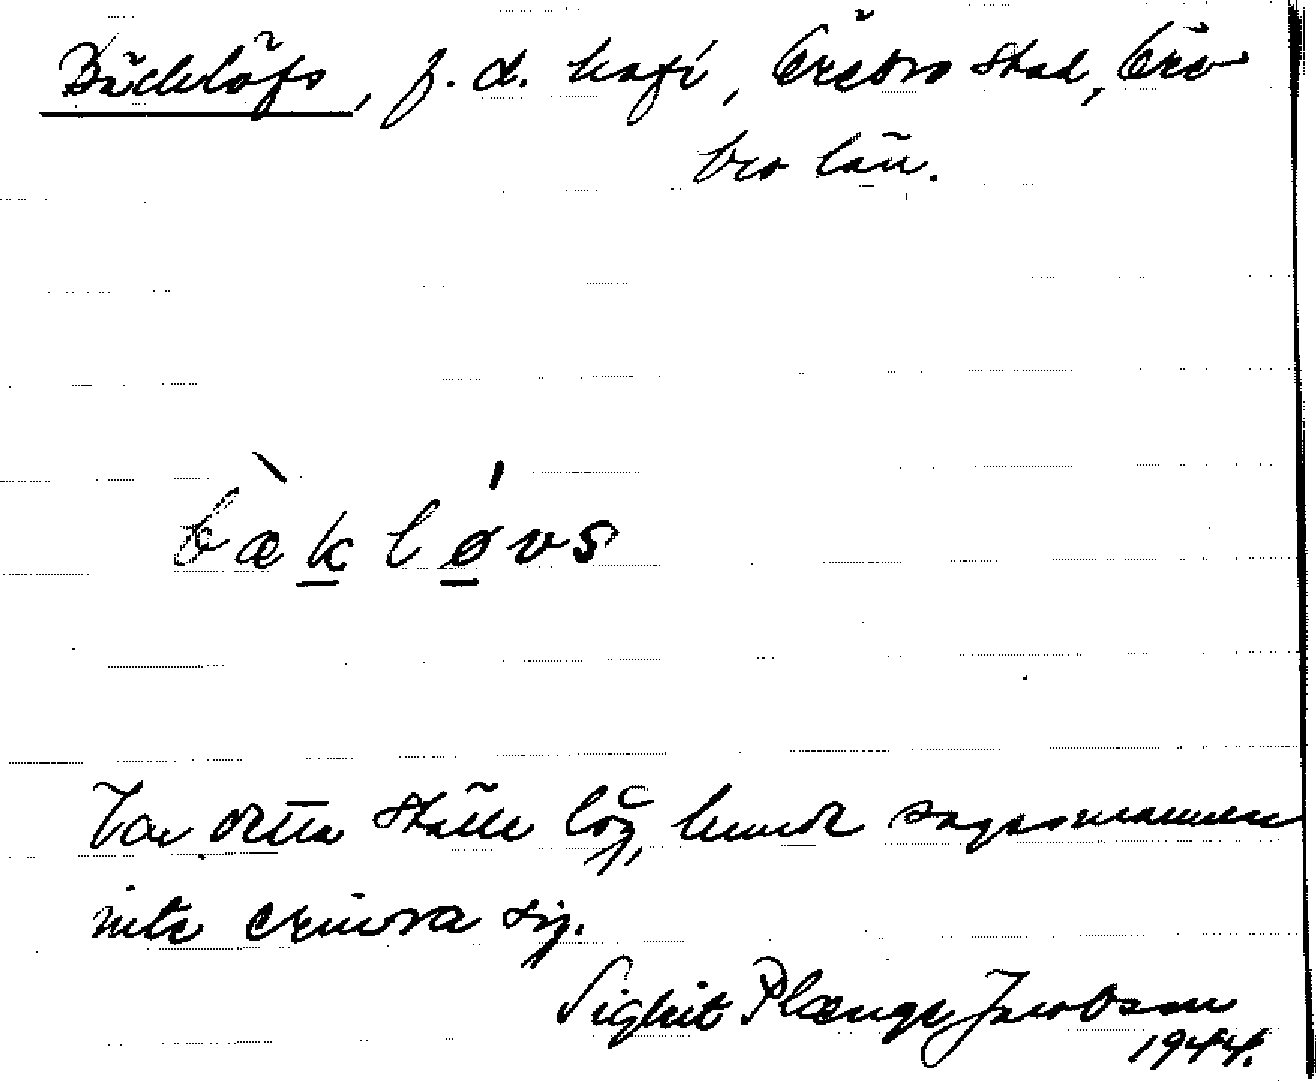 Bäcklöfs, f. d. kafé, Örebro stad, Öre-
bro län.
bæ̀klǿvs
Var detta ställe låg, kunde sagesmannen
inte erinra sig.
Sigbrit Plænge Jacobson
1944.